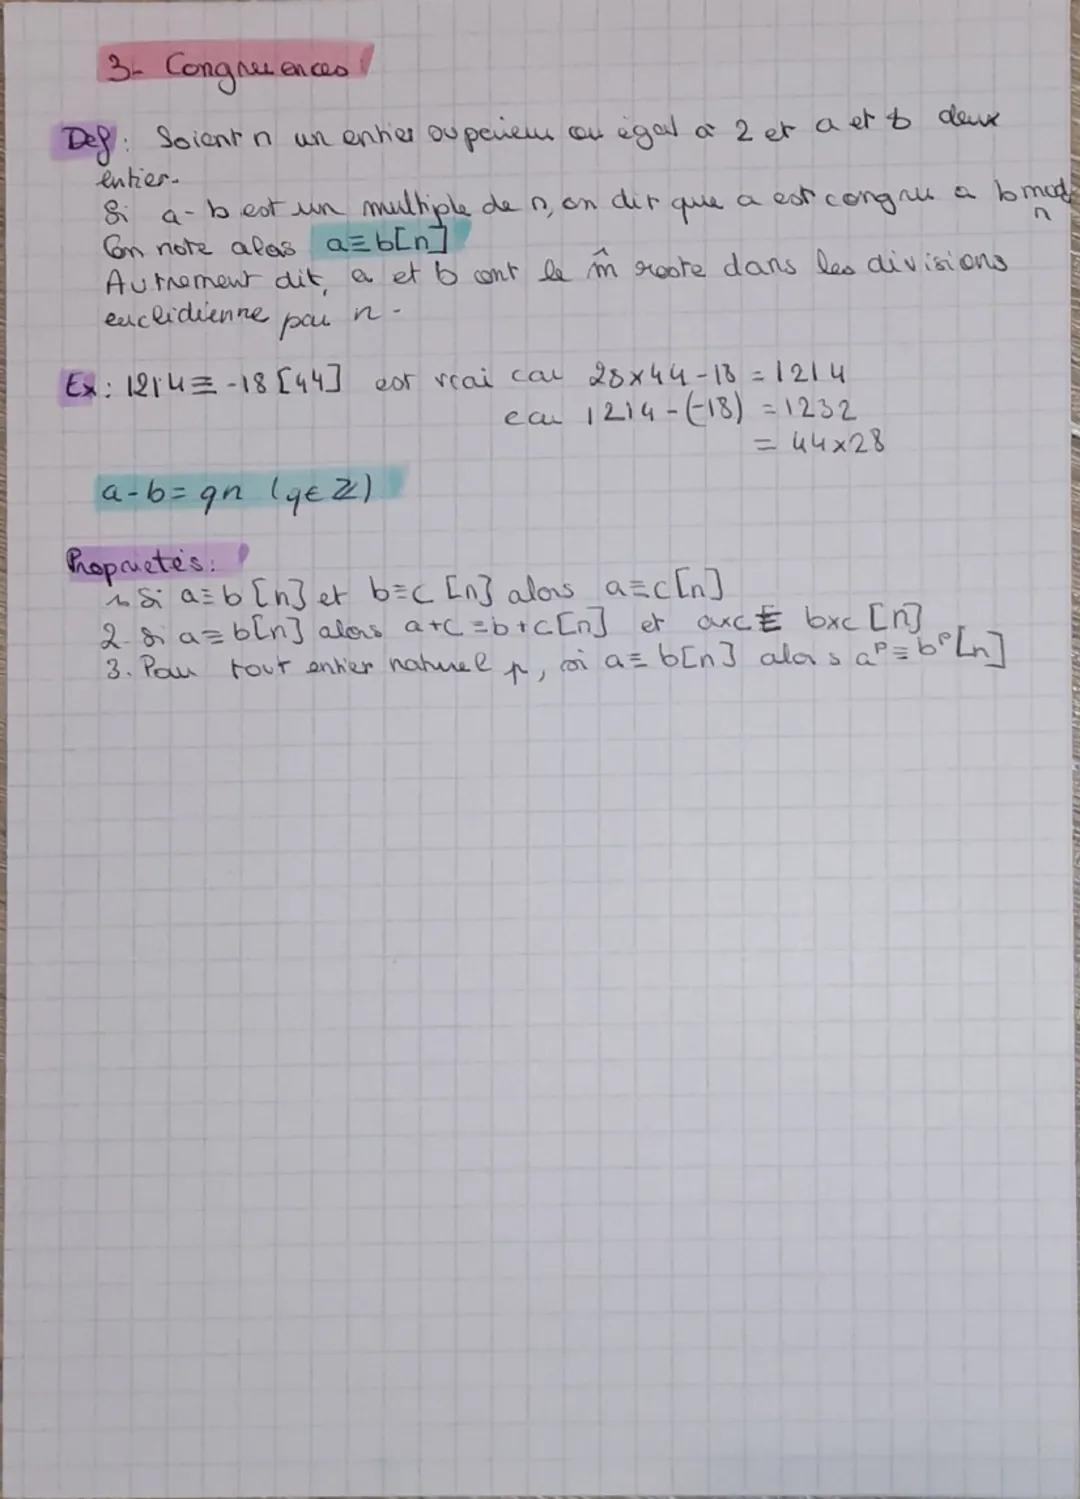 3- Congruences
Def: Soient n un entier supérieur ou égal à 2 et a et b deux
entier.
Si a-b est un multiple de n, on dit que a est congru a b mod
n
On note alos a≡b[n]
Autrement dit, a et b ont le m̂ reste dans les divisions
euclidienne par n.
Ex: 1214≡ -18 [44] est vrai car 28x44-18 = 1214
car 1214-(-18) = 1232
= 44x28
a-b= qn (q∈ℤ)
Propriétés:
1. Si a≡b [n] et b≡c [n] alors a≡c[n]
2. Si a≡b[n] alors a+c ≡b+c[n] et axc≡ bxc [n]
3. Pour tout entier naturel p, si a≡ b[n] alors aᵖ≡bᵖ[n]